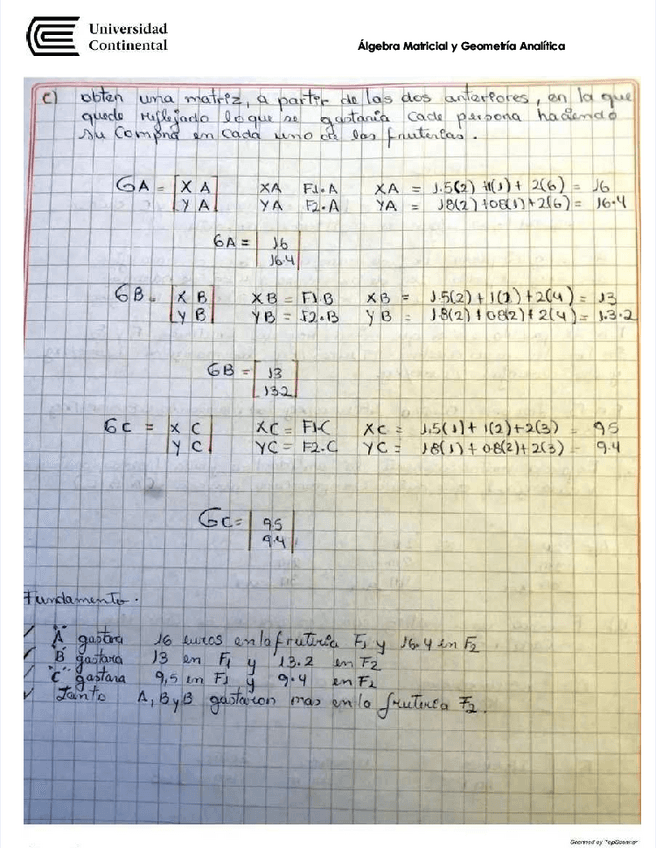 Universidad
Continental
Álgebra Matricial y Geometría Analítica
c) obten una matriz, a partir de las dos anteriores, en la que
quede reflejado lo que se gastaria cade persona haciendo
su compra en cada uno de las fruterias.
GA = [X A] XA F1·A XA = 1.5(2) + 1(1) + 2(6) = 16
[Y A] YA F2·A YA = 1.8(2) + 08(1) + 2(6) = 16.4
GA = [16
16.4]
GB = [X B] XB = F1·B XB = 1.5(2) + 1(2) + 2(4) = 13
[Y B] YB = F2·B YB = 1.8(2) + 08(2) + 2(4) = 1.3.2
GB = [13
13.2]
GC = [X C] XC = F1·C XC = 1.5(1) + 1(2) + 2(3) = 95
[Y C] YC = F2·C YC = 1.8(1) + 0.8(2) + 2(3) = 9.4
GC = [9.5
9.4]
Fundamento.
"A" gastara 16 euros en la fruteria F1 y 16.4 en F2
"B" gastara 13 en F1 y 13.2 en F2
"C" gastara 9,5 en F1 y 9.4 en F2
Tanto A, B y B gastaron mas en la fruteria F2.